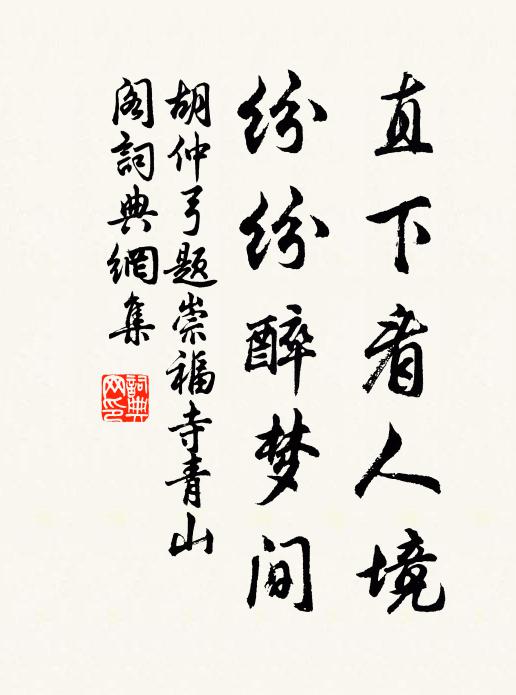 直下看人境
纷纷醉梦间
胡仲弓题崇福寺青山
阁詞典網集
詞典网印